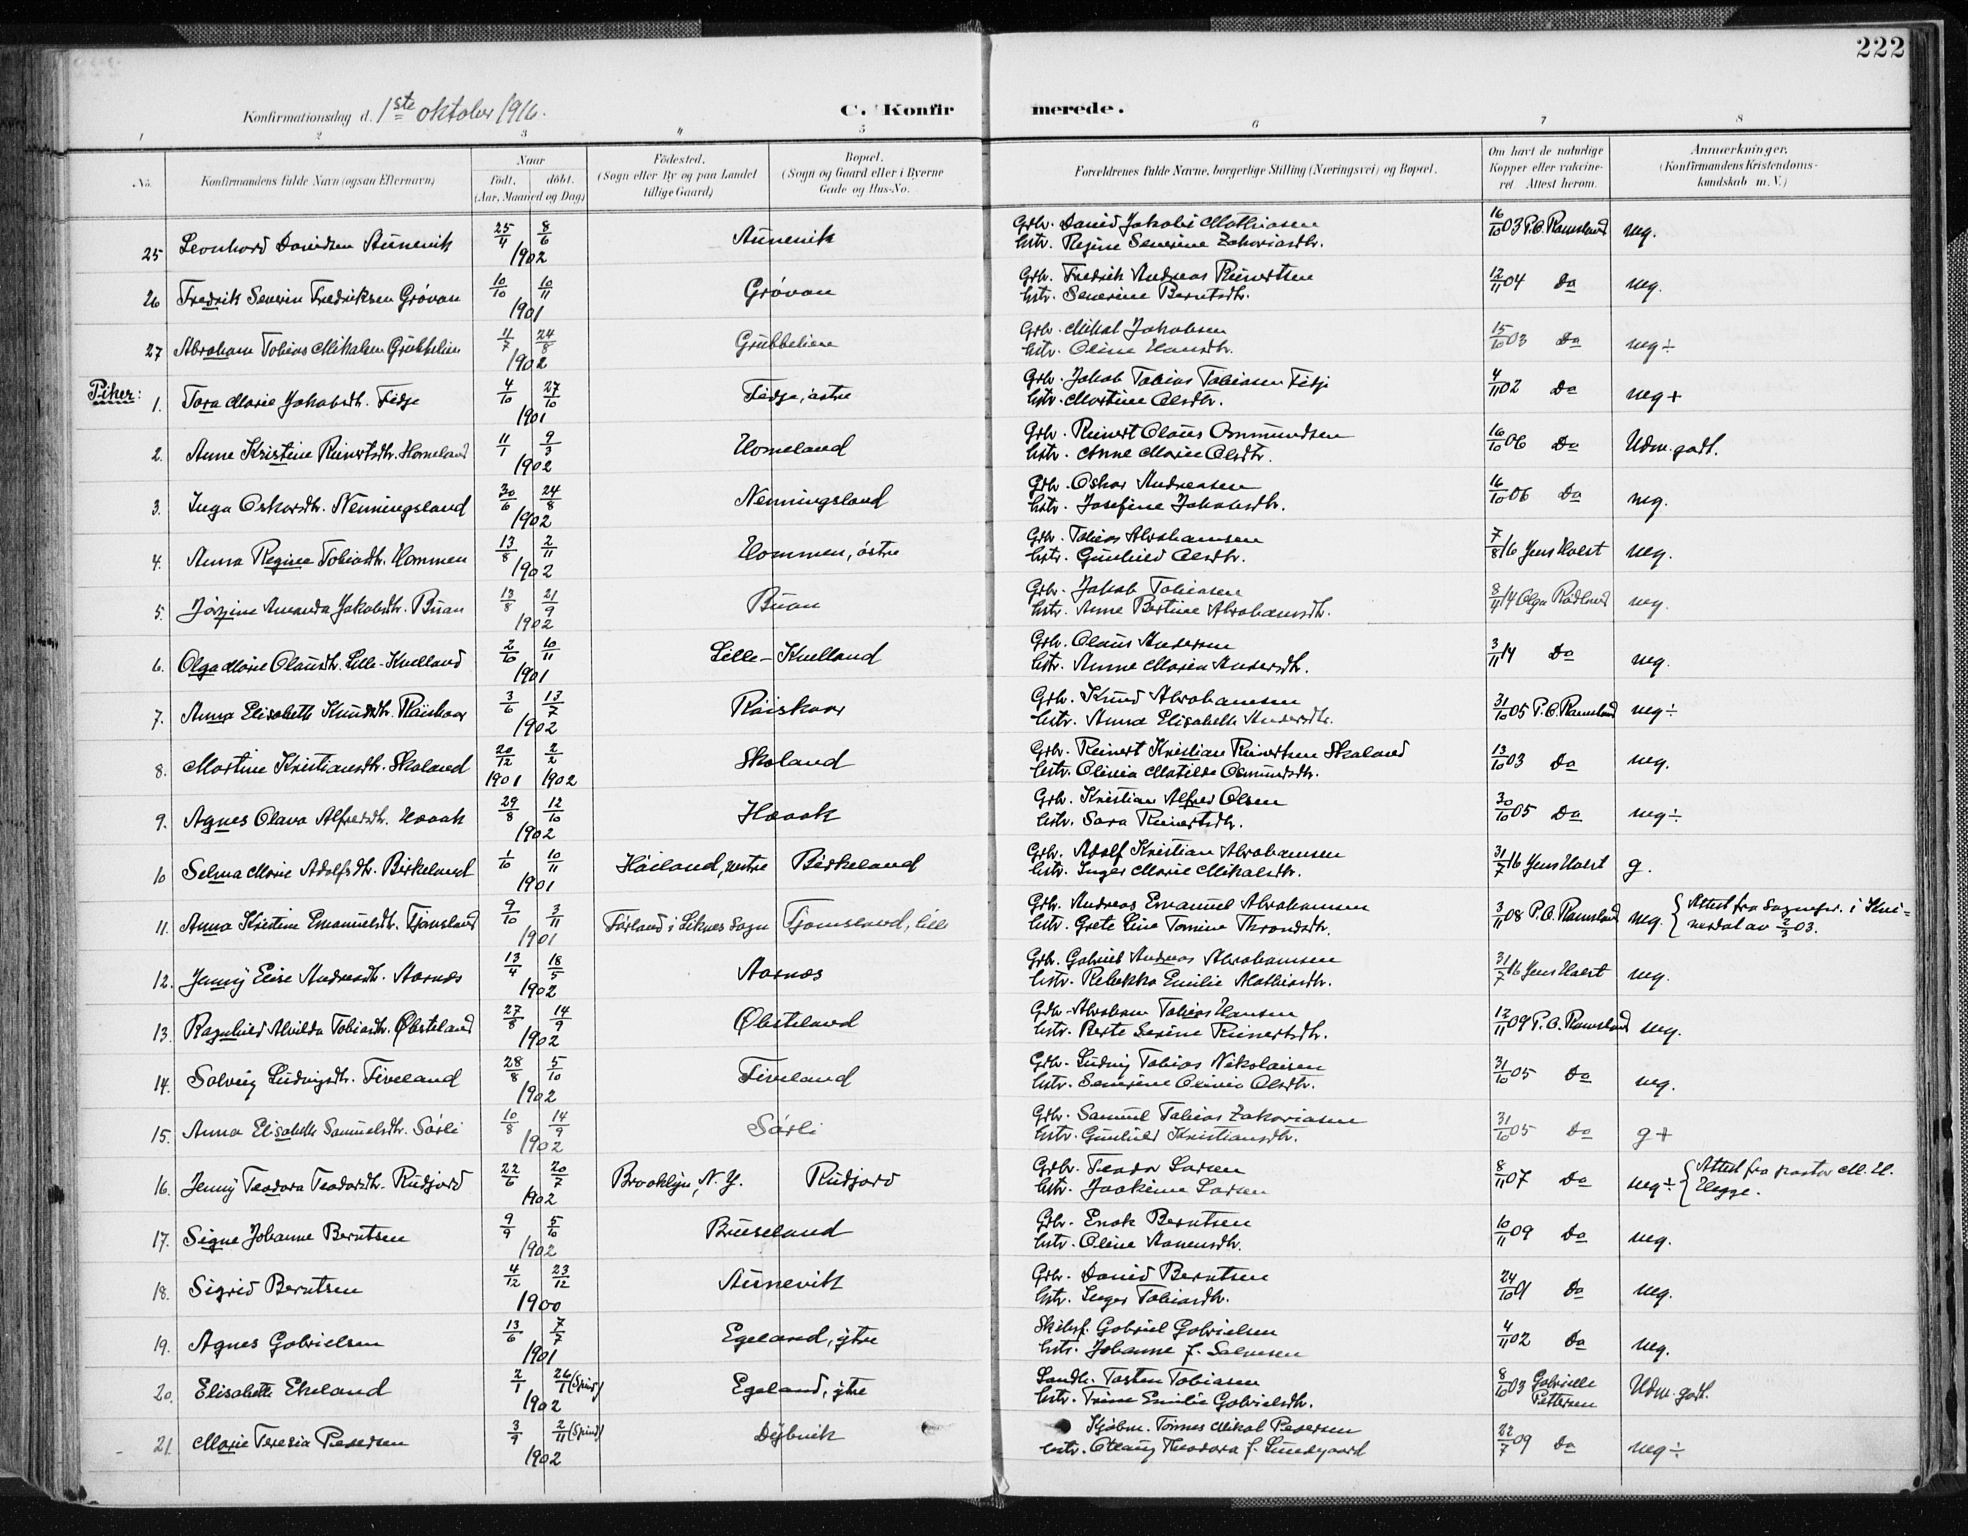 222
Konfirmationsdag d. 1ste oktober 1916.
C. Konfirmerede.
1 2 3 4 5 6 7 8
No. Konfirmandens fulde Navn (ogsaa Efternavn) Naar födt, döbt. (Aar, Maaned og Dag) Födested. (Sogn eller By og paa Landet tillige Gaard) Bopæl. (Sogn og Gaard eller i Byerne Gade og Hus-No. Forældrenes fulde Navne, borgerlige Stilling (Næringsvei) og Bopæl. Om havt de naturlige Kopper eller vakcineret Attest herom. Anmærkninger. (Konfirmandens Kristendomskundskab m. V.)
25 Leonhard Danielsen Aunevik 25/4 8/6 1902 Aunevik Grbr. Daniel Jakobi Mathiasen 16/10 03 P.O. Ramsland meg.
hstr. Regine Severine Zakariasdtr.
26 Fredrik Severin Fredriksen Grøvan 10/10 10/11 1901 Grøvan Grbr. Fredrik Andreas Reinertsen 12/11 04 Do meg.
hstr. Severine Berntsdtr.
27 Abraham Tobias Mikalsen Grubbelien 11/7 24/8 1902 Grubbeliene Grbr. Mikal Jakobsen 15/10 03 Do meg ÷
hstr. Oline Hansdtr.
Piker:
1. Tora Marie Jakobsdtr. Fidje 4/10 27/10 1901 Fidje, østre Grbr. Jakob Tobias Tobiasen Fidje 4/11 02 Do meg +
hstr. Martine Olsdtr.
2. Anne Kristine Reinertsdtr. Homeland 11/1 9/3 1902 Homeland Grbr. Reinert Olaus Ommundsen 16/10 06 Do Udm. godt.
hstr. Anne Marie Olsdtr.
3. Inga Oskarsdtr. Nenningsland 30/6 24/8 1902 Nenningsland Grbr. Oskar Andreasen 16/10 06 Do meg.
hstr. Josefine Jakobsdtr.
4. Anna Regine Tobiasdtr. Hommen 13/8 2/11 1902 Hommen, østre Grbr. Tobias Abrahamsen 7/8 16 Jens Holst meg.
hstr. Gunhild Olsdtr.
5. Jørgine Amanda Jakobsdtr. Buan 13/8 21/9 1902 Buan Grbr. Jakob Tobiasen 8/4 14 Olga Rødland meg.
hstr. Anne Bertine Abrahamsdtr.
6. Olga Marie Olausdtr. Lille-Kvelland 2/10 10/11 1901 Lille-Kvelland Grbr. Olaus Andersen 3/11 14 Do meg.
hstr. Anne Maria Andersdtr.
7. Anna Elisabeth Knudsdtr. Røiskaar 3/6 13/7 1902 Røiskaar Grbr. Knud Abrahamsen 31/10 05 P.O. Ramsland meg ÷
hstr. Anna Elisabeth Andersdtr.
8. Martine Kristiansdtr. Skoland 20/12 1901 2/2 1902 Skoland Grbr. Reinert Kristian Reinertsen Skaland 13/10 03 Do meg.
hstr. Olivia Matilde Osmundsdtr.
9. Agnes Olava Alfredsdtr. Haaak 29/8 12/10 1902 Haaak Grbr. Kristian Alfred Olsen 30/10 05 Do meg ÷
hstr. Sara Reinertsdtr.
10 Selma Marie Adolfsdtr. Birkeland 1/10 10/11 1901 Høiland, vestre Birkeland Grbr. Adolf Kristian Abrahamsen 31/7 16 Jens Holst g.
hstr. Inger Marie Mikalsdtr.
11. Anna Kristine Emanuelsdtr. Tjomsland 9/10 3/11 1901 Førland i Liknes Sogn Tjomsland, lille Grbr. Andreas Emanuel Abrahamsen 3/11 08 P.O. Ramsland meg. { Attest fra Sognepr. i Kvinesdal av 2/3 03.
hstr. Grete Line Tomine Throndsdtr.
12. Jenny Elise Andreasdtr. Aarnes 13/4 18/5 1902 Aarnes Grbr. Gabriel Andreas Abrahamsen 31/7 16 Jens Holst meg.
hstr. Rebekka Emilie Mathiasdtr.
13. Ragnhild Alvilda Tobiasdtr. Øksteland 27/8 14/9 1902 Øksteland Grbr. Abraham Tobias Hansen 12/11 09 P.O. Ramsland meg.
hstr. Berte Serine Reinertsdtr.
14. Solveig Ludvigsdtr. Fiveland 28/8 5/10 1902 Fiveland Grbr. Ludvig Tobias Nikolaisen 31/10 05 Do meg.
hstr. Severine Olivia Olsdtr.
15. Anna Elisabeth Samuelsdtr. Sørli 10/8 14/9 1902 Sørli Grbr. Samuel Tobias Zakariasen 31/10 05 Do g +
hstr. Gunhild Kristiansdtr.
16. Jenny Teodora Teodorsdtr. Rudjord 22/6 20/7 1902 Brooklyn, N. Y. Rudjord Grbr. Teodor Larsen 8/11 07 Do meg ÷ { Attest fra pastor M. H. Hegge.
hstr. Joakime Larsen
17. Signe Johanne Berntsen 9/9 5/10 1902 Brueseland Grbr. Enok Berntsen 10/11 09 Do meg.
hstr. Oline Aanensdtr.
18. Sigrid Berntsen 4/12 23/12 1900 Aunevik Grbr. Daniel Berntsen 24/10 01 Do meg.
hstr. Inger Tobiasdtr.
19. Agnes Gabrielsen 13/6 7/7 1901 Egeland, ytre Skibsf. Gabriel Gabrielsen 4/11 02 Do meg.
hstr. Johanne f. Salvesen
20. Elisabeth Ekeland 2/1 26/1 (Spind) 1902 Egeland, ytre Landh. Torsten Tobiasen 8/10 03 Gabrielle Pettersen Udm. godt.
hstr. Trine Emilie Gabrielsdtr.
21. Marie Teresia Pedersen 3/9 2/11 (Spind) 1902 Dybvik Kjøbm. Tønnes Mikal Pedersen 22/7 09 Do meg ÷
hstr. Otteny Theodora f. Lundegaard